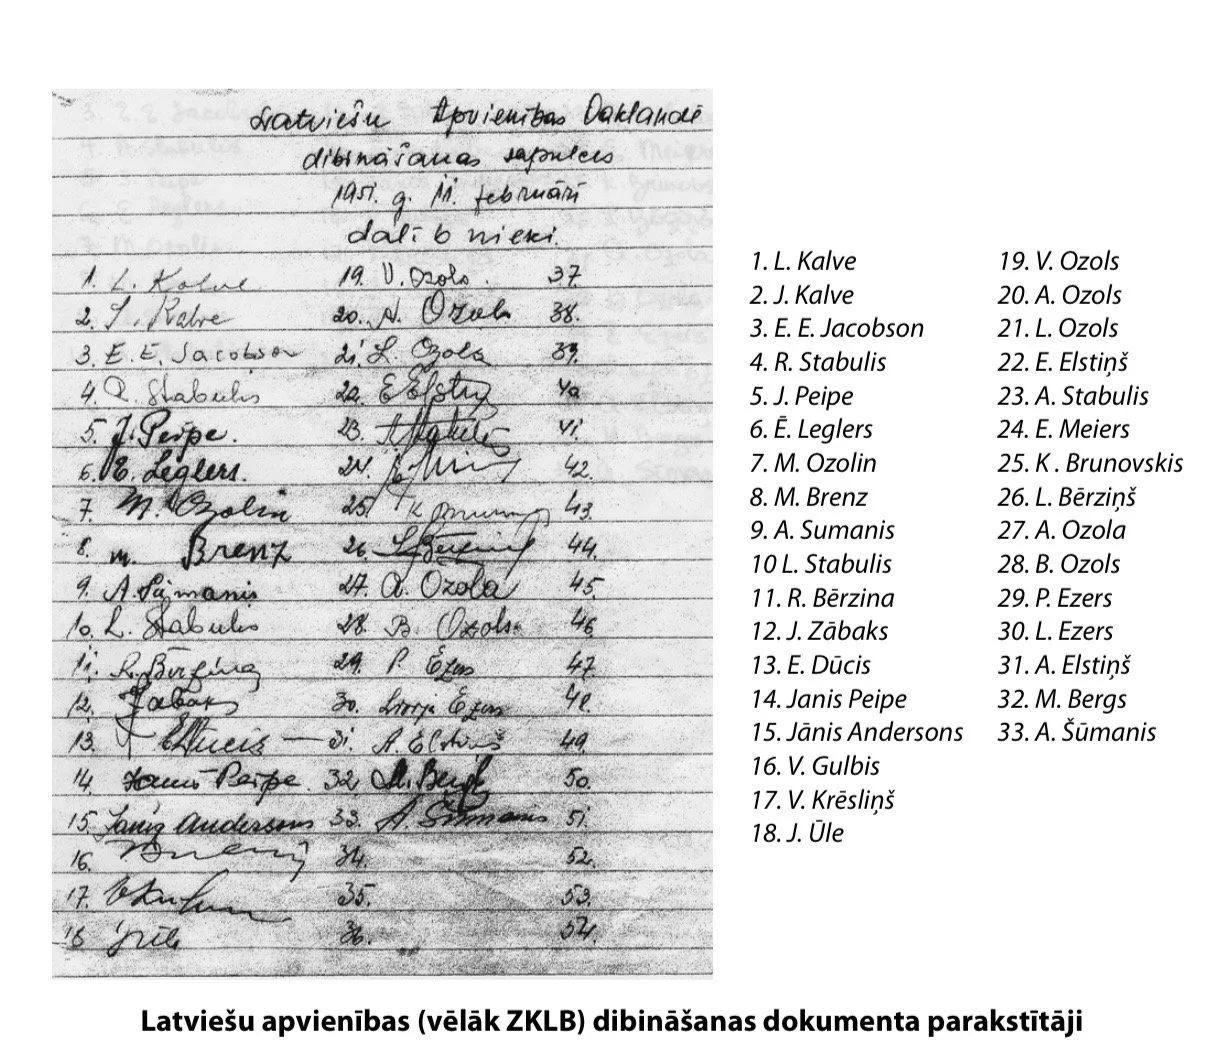 Latviešu Apvienības Oaklandē
dibināšanas sapulces
1951. g. 11. februārī
dalībnieki.
1. L. Kalve
2. J. Kalve
3. E. E. Jacobson
4. R. Stabulis
5. J. Peipe.
6. E. Leglers.
7. M. Ozolin
8. M. Brenz
9. A. Sūmanis
10. L. Stabulis
11. R. Bērziņa
12. J Zabaks
13. E Ducis
14. Janis Peipe.
15. Janis Andersons
16.
17.
18 J Ūle
19. V. Ozols.
20. A. Ozols
21. L. Ozola
22. E Elstiņ
23. A Stabulis
24.
25. K
26. L. Bērziņš
27. A. Ozola
28. B. Ozols.
29. P. Ezers
30. Ezers
31. A. Elstiņš
32. M. Bergs
33. A. Šūmanis
34.
35.
36.
37.
38.
39.
40
41.
42.
43.
44.
45.
46
47.
48.
49.
50.
51.
52.
53.
54.
1. L. Kalve
2. J. Kalve
3. E. E. Jacobson
4. R. Stabulis
5. J. Peipe
6. Ē. Leglers
7. M. Ozolin
8. M. Brenz
9. A. Sumanis
10 L. Stabulis
11. R. Bērzina
12. J. Zābaks
13. E. Dūcis
14. Janis Peipe
15. Jānis Andersons
16. V. Gulbis
17. V. Krēsliņš
18. J. Ūle
19. V. Ozols
20. A. Ozols
21. L. Ozols
22. E. Elstiņš
23. A. Stabulis
24. E. Meiers
25. K . Brunovskis
26. L. Bērziņš
27. A. Ozola
28. B. Ozols
29. P. Ezers
30. L. Ezers
31. A. Elstiņš
32. M. Bergs
33. A. Šūmanis
Latviešu apvienības (vēlāk ZKLB) dibināšanas dokumenta parakstītāji